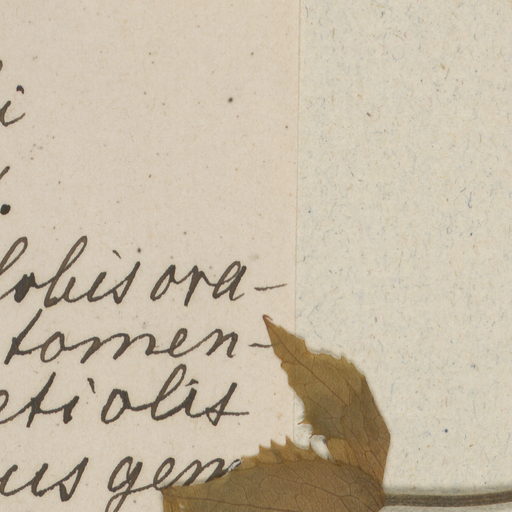 i
.
lobis ova-
tomen-
etiolis
us gem